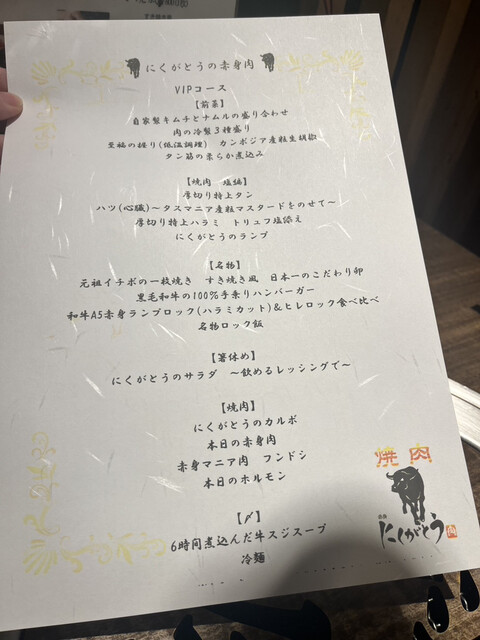 にくがとうの赤身肉
VIPコース
【前菜】
自家製キムチとナムルの盛り合わせ
肉の冷製3種盛り
至福の握り(低温調理) カンボジア産粒生胡椒
タン筋の柔らか煮込み
【焼肉 塩編】
厚切り特上タン
ハツ(心臓)～タスマニア産粒マスタードをのせて～
厚切り特上ハラミ トリュフ塩添え
にくがとうのランプ
【名物】
元祖イチボの一枚焼き すき焼き風 日本一のこだわり卵
黒毛和牛の100%手乗りハンバーガー
和牛A5赤身ランプロック(ハラミカット)&ヒレロック食べ比べ
名物ロック飯
【箸休め】
にくがとうのサラダ ～飲めるレッシングで～
【焼肉】
にくがとうのカルボ
本日の赤身肉
赤身マニア肉 フンドシ
本日のホルモン
【〆】
6時間煮込んだ牛スジスープ
冷麺
焼肉
にくがとう